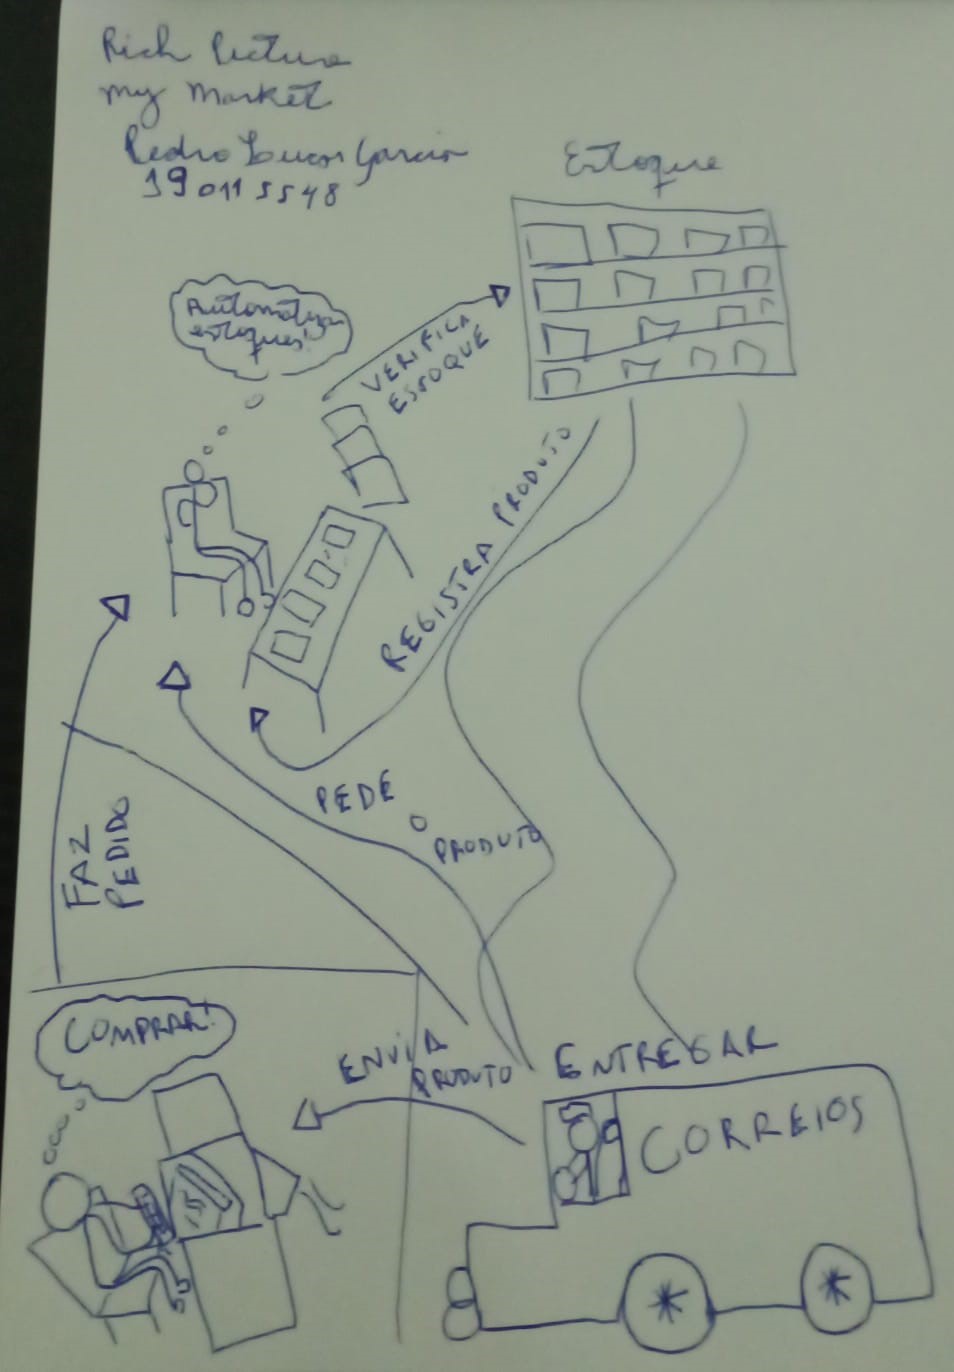 Rich Picture
My Market
Pedro Lucas Garcia
190115548
Estoque
Automatizar
estoques!
VERIFICA
ESTOQUE
REGISTRA PRODUTO
PEDE
O
PRODUTO
FAZ
PEDIDO
COMPRAR!
ENVIA
PRODUTO
ENTREGAR
CORREIOS